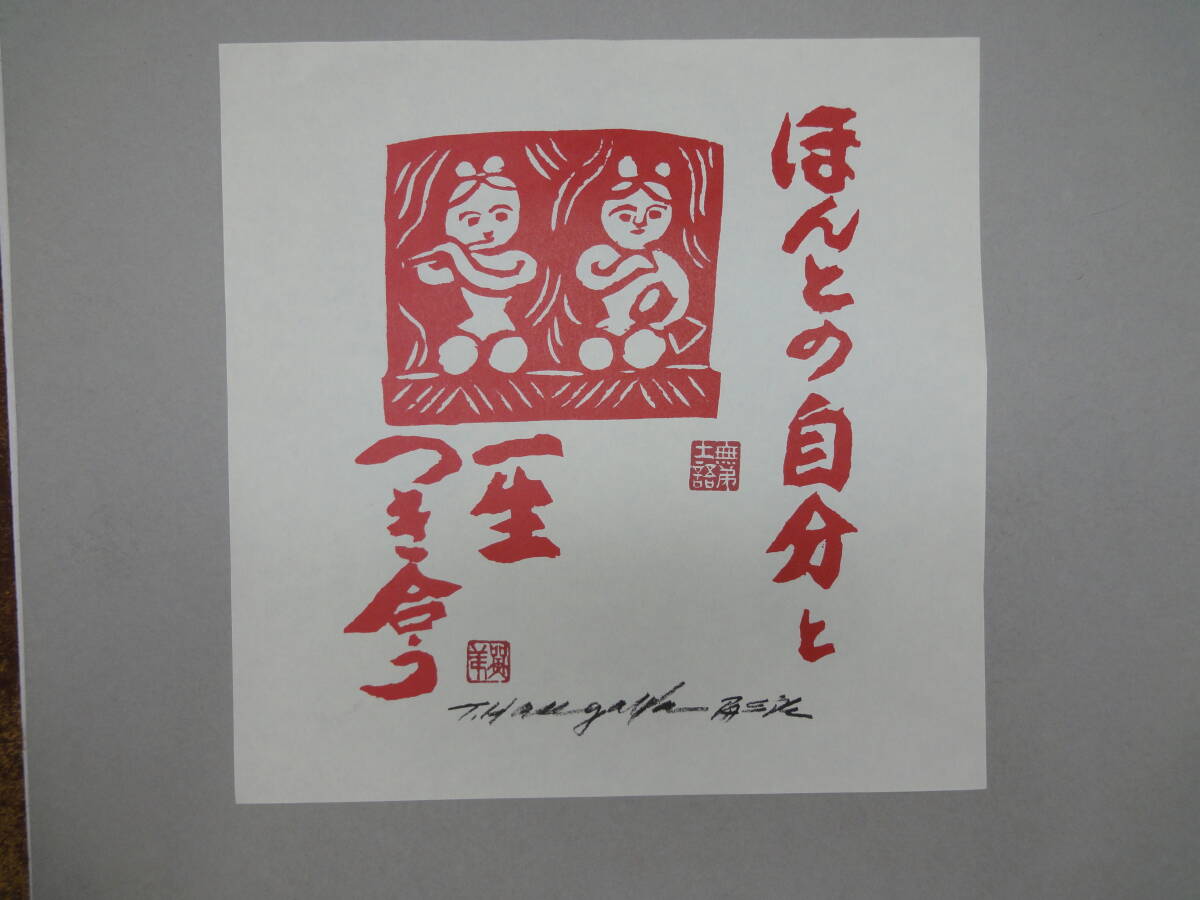 ほんとの自分と
一生
つき合う
無弟
土語
T.Hasegawa 富三郎